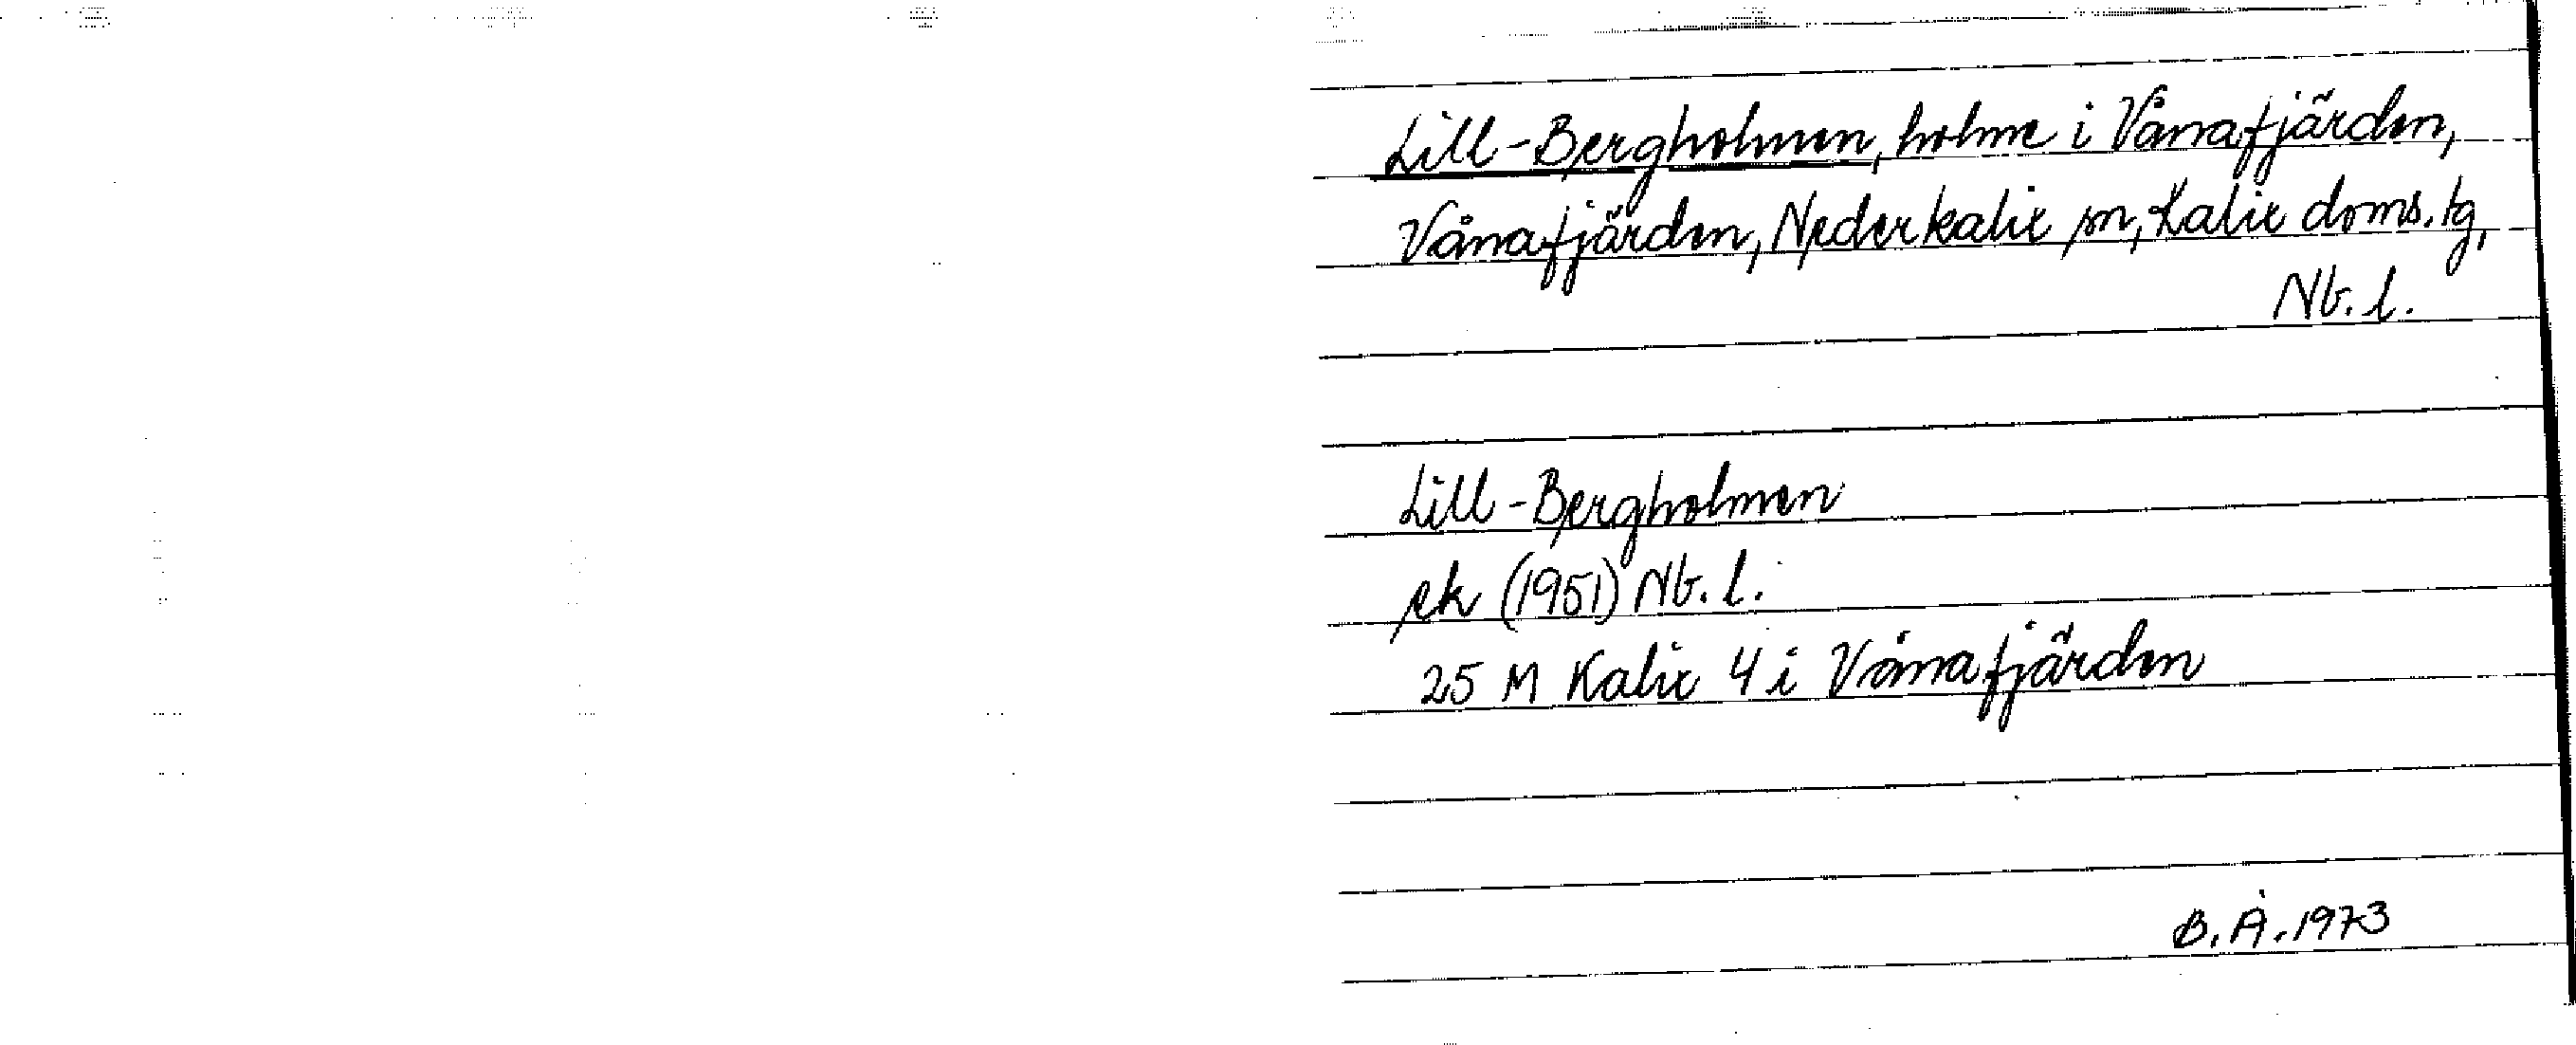 Lill-Bergholmen, holme i Vånafjärden,
Vånafjärden, Nederkalix sn, Kalix doms.tg,
Nb. l.
Lill-Bergholmen
ek (1951) Nb. l.
25 M Kalix 4 i Vånafjärden
B.Å. 1973